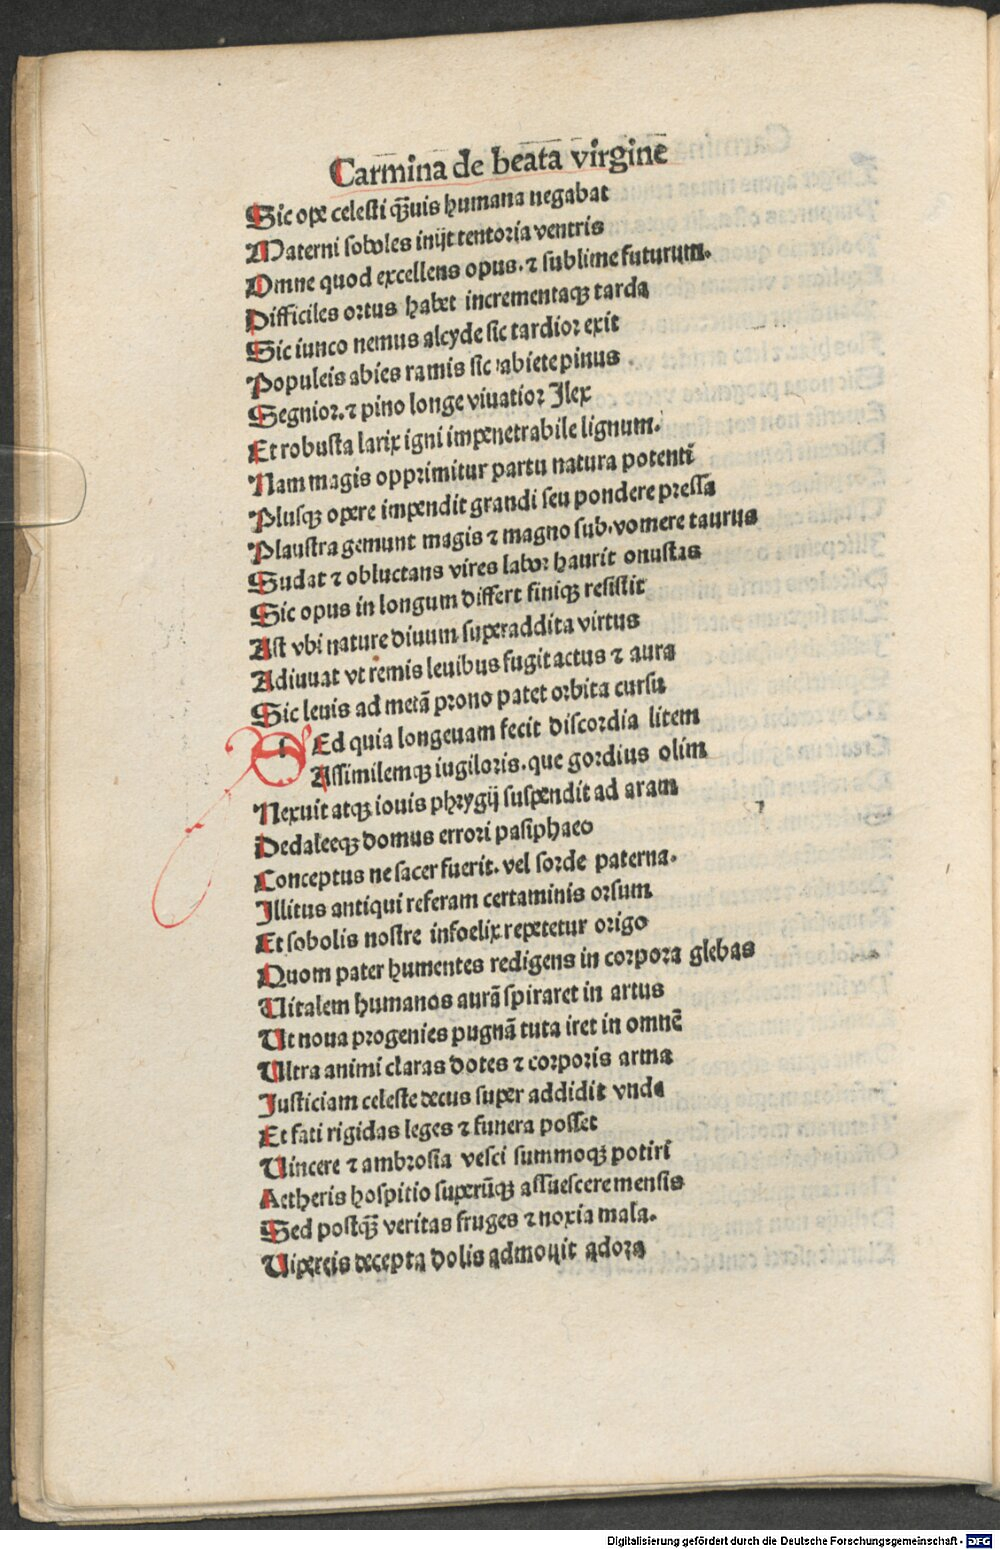 Carmina de beata virgine
Sic ope celesti qͣ̄uis humana negabat
Materni soboles inijt tentoria ventris
Omne quod excellens opus. ⁊ sublime futurum.
Difficiles ortus habet incrementaqꝫ tarda
Sic iunco nemus alcyde sic tardior exit
Populeis abies ramis sic abiete pinus
Segnior. ⁊ pino longe viuatior Ilex
Et robusta larix igni impenetrabile lignum.
Nam magis opprimitur partu natura potenti
Plusqꝫ opere impendit grandi seu pondere pressa
Plaustra gemunt magis ⁊ magno sub. vomere taurus
Sudat ⁊ obluctans vires labor haurit onustas
Sic opus in longum differt finiqꝫ resistit
Ast vbi nature diuum superaddita virtus
Adiuuat vt remis leuibus fugit actus ⁊ aura
Sic leuis ad metā prono patet orbita cursu
SEd quia longeuam fecit discordia litem
Assimilemqꝫ iugiloris. que gordius olim
Nexuit atqꝫ iouis phrygij suspendit ad aram
Dedaleeqꝫ domus errori pasiphaeo
Conceptus ne sacer fuerit. vel sorde paterna.
Illitus antiqui referam certaminis orsum
Et sobolis nostre infoelix repetetur origo
Quom pater humentes redigens in corpora glebas
Uitalem humanos aurā spiraret in artus
Ut noua progenies pugnā tuta iret in omnē
Ultra animi claras dotes ⁊ corporis arma
Iusticiam celeste decus super addidit vnde
Et fati rigidas leges ⁊ funera posset
Uincere ⁊ ambrosia vesci summoqꝫ potiri
Aetheris hospitio superūqꝫ assuescere mensis
Sed postqꝫ̄ veritas fruges ⁊ noxia mala.
Uipereis decepta dolis admouit adora
Digitalisierung gefördert durch die Deutsche Forschungsgemeinschaft - DFG